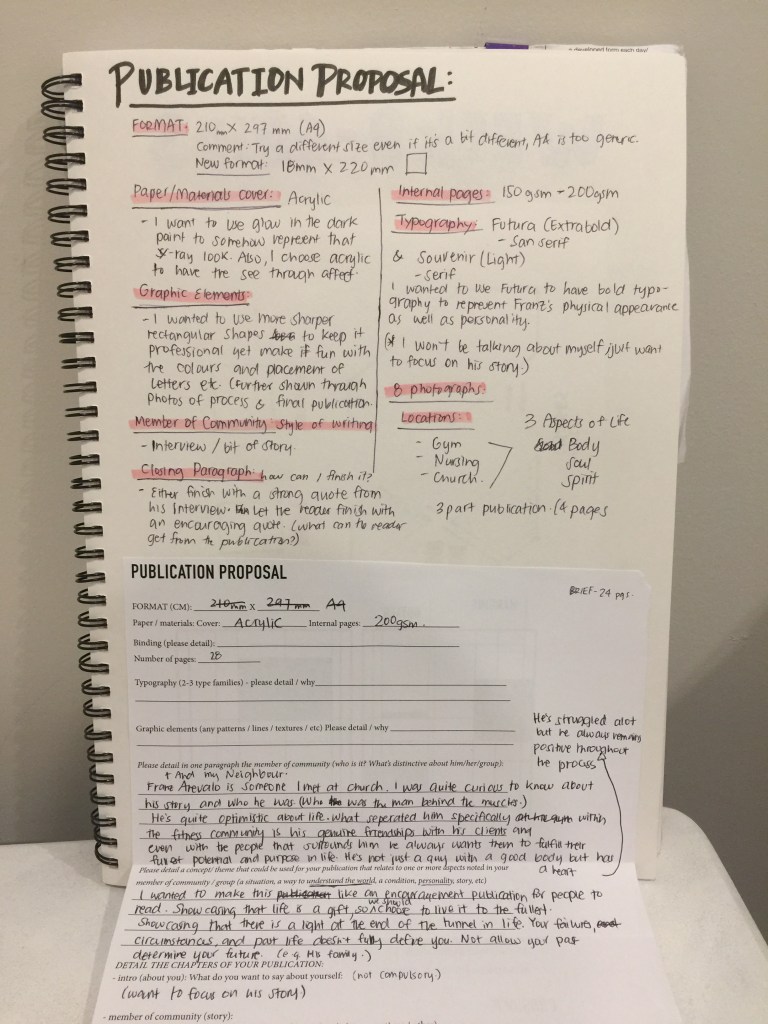 - developed from each day/
PUBLICATION PROPOSAL:
FORMAT: 210mm X 297 mm (A4)
Comment: Try a different size even if it's a bit different, A4 is too generic.
New format: 18mm X 220mm
Paper/Materials cover: Acrylic
- I want to use glow in the dark
paint to somehow represent that
X-ray look. Also, I choose acrylic
to have the see through affect.
Graphic Elements:
- I wanted to use more sharper
rectangular shapes to keep it
professional yet make it fun with
the colours and placement of
letters etc. (Further shown through
photos of process & final publication.
Member of Community: style of writing
- Interview / bit of story.
Closing Paragraph: how can I finish it?
- Either finish with a strong quote from
his interview. Let the reader finish with
an encouraging quote. (What can the reader
get from the publication?)
Internal pages: 150gsm - 200gsm
Typography: Futura (Extrabold)
- San serif
& Souvenir (Light)
- serif
I wanted to use Futura to have bold typo-
graphy to represent Franz's physical appearance
as well as personality.
(I won't be talking about myself just want
to focus on his story.)
8 photographs
Locations:
- Gym
- Nursing
- Church.
3 Aspects of Life
Body
Soul
Spirit
3 part publication. (4 pages
PUBLICATION PROPOSAL
BRIEF - 24 pgs.
FORMAT (CM): 210mm X 297mm A4
Paper / materials: Cover: Acrylic Internal pages: 200gsm.
Binding (please detail):
Number of pages: 28
Typography (2-3 type families) - please detail / why
Graphic elements (any patterns / lines / textures / etc) Please detail / why
He's struggled alot
but he always remains
positive throughout
the process
Please detail in one paragraph the member of community (who is it? What's distinctive about him/her/group):
+ And my Neighbour.
Franz Arevalo is someone I met at church. I was quite curious to know about
his story and who he was (Who was the man behind the muscles.)
He's quite optimistic about life. What seperated him specifically within
the fitness community is his genuine friendships with his clients any
even with the people that surrounds him he always wants them to fulfill their
fullest potential and purpose in life. He's not just a guy with a good body but has
a heart
Please detail a concept/ theme that could be used for your publication that relates to one or more aspects noted in your
member of community / group (a situation, a way to understand the world, a condition, personality, story, etc)
I wanted to make this publication like an encouragement publication for people to
read. Showcasing that life is a gift, so we should choose to live it to the fullest.
Showcasing that there is a light at the end of the tunnel in life. Your failures,
circumstances, and past life doesn't fully define you. Not allow your past
determine your future. (e.g. His family.)
DETAIL THE CHAPTERS OF YOUR PUBLICATION:
- intro (about you): What do you want to say about yourself: (not compulsory.)
(want to focus on his story)
- member of community (story):